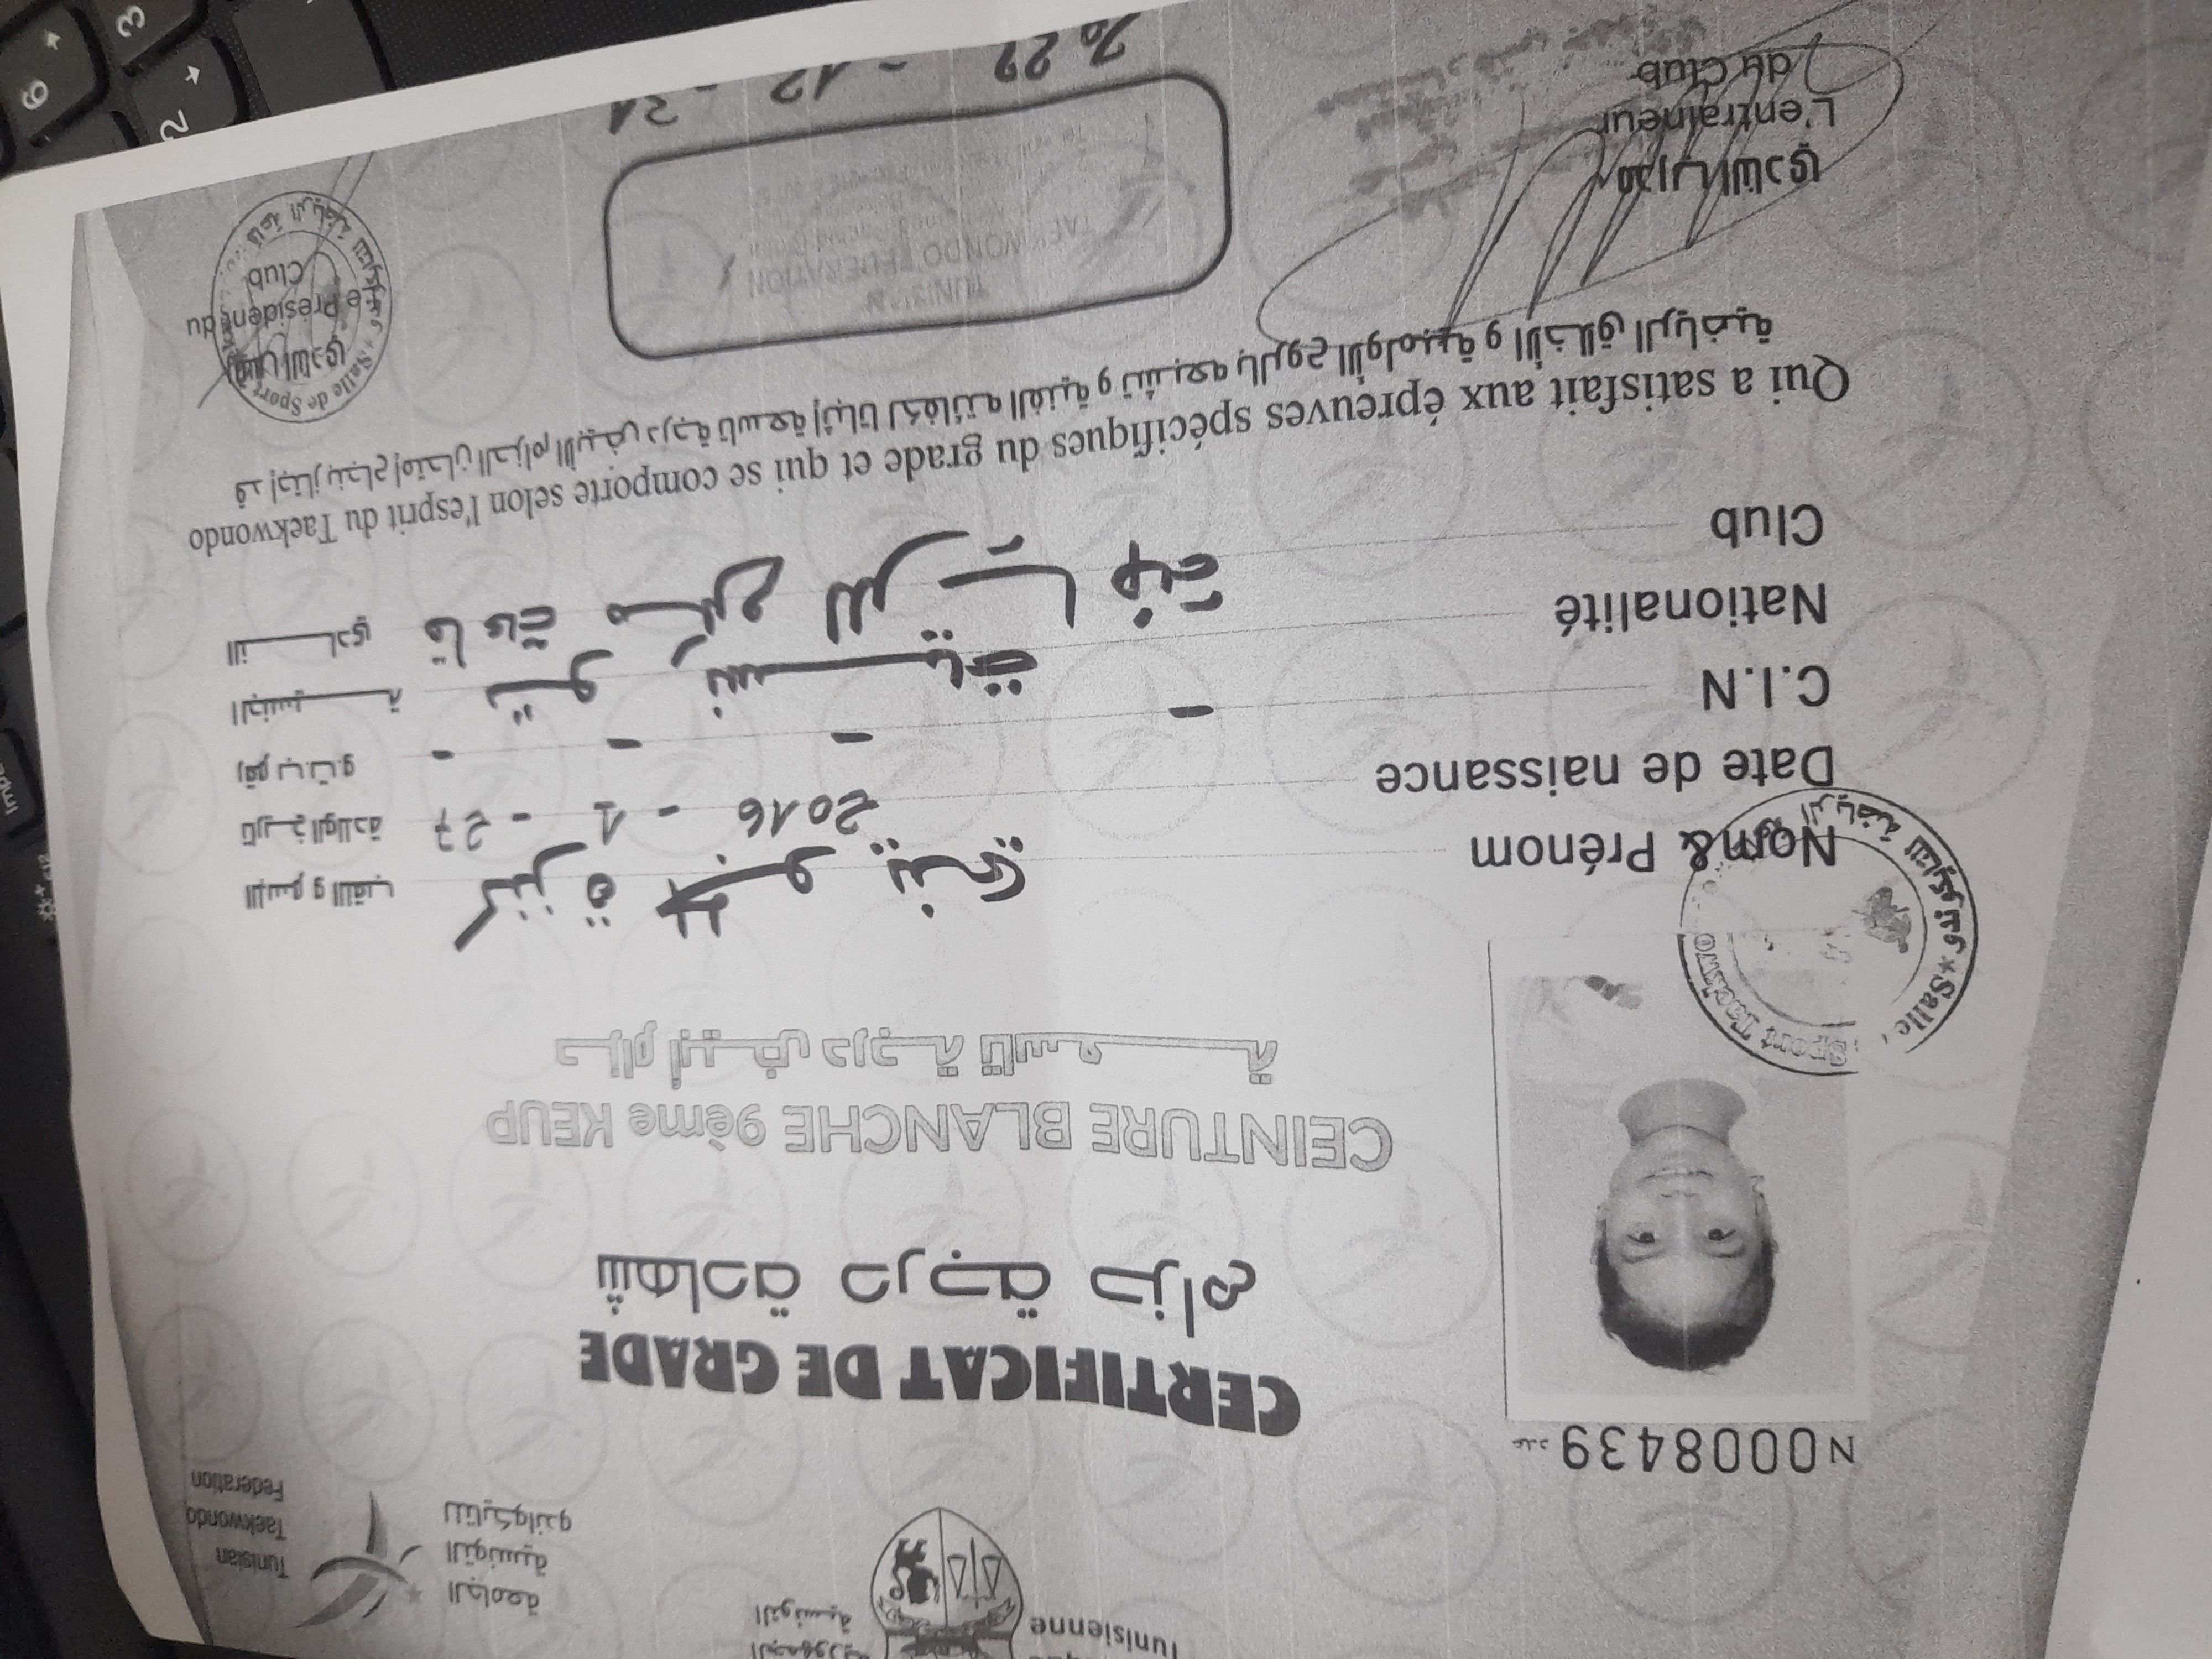 الجمهورية
التونسية
Tunisienne
الجامعة
التونسية
للتايكواندو
Tunisian
Taekwondo
Federation
N0008439 عدد
CERTIFICAT DE GRADE
شهادة درجة حزام
CEINTURE BLANCHE 9ème KEUP
حزام أبيض درجة تاسعة
Nom & Prénom
الإسم و اللقب
Date de naissance 2016 - 1 - 27 تاريخ الولادة
C.I.N - - - - رقم ب.ت.و
Nationalité تونسية الجنسية
Club النادي
Qui a satisfait aux épreuves spécifiques du grade et qui se comporte selon l'esprit du Taekwondo
قد إجتاز بنجاح إمتحان الحزام الأبيض درجة تاسعة إثباتا لكفائته الفنية و تشبعه بالروح الأولمبية و الأخلاق الرياضية
مدرب النادي
L'entraineur
du Club
TUNISIAN
TAEKWONDO FEDERATION
رئيس النادي
Le Président du
Club
Salle de Sport
2022 - 12 - 31